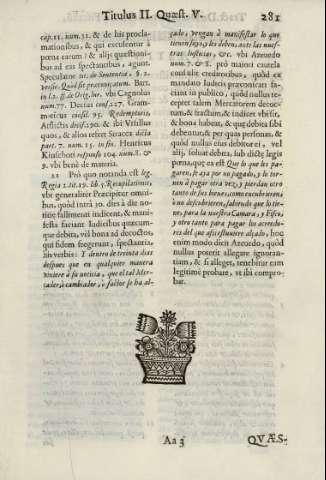 Titulus II. Quæst. V.
281
cap. 11. num. 31. & de his procla-
mationibus, & qui excusentur à
pœna earum? & alijs quæstioni-
bus ad eas spectantibus, agunt.
Speculator tit. de Sententia, §. 2.
versic. Quid sit præterea,
in L2. ff. de Orig. Iur. vbi Cagnolus
num. 77. Decius cons. 227. Gram-
maticus consil. 95. Redemptoris.
Afflictis decis. 90. & ibi Vrsillus
quos, & alios refert Stracca dicta
part. 7. num. 15. in fin. Henricus
Kinschott respons. 104. num. 8. &
9. vbi bene de materia.
Pro quo notanda est leg.
Regia 2. tit. 19. lib. 5. Recopilationis,
vbi generaliter Præcipitur omni-
bus, quòd intrà 30. dies à die no-
titiæ fallimenti indicent, & mani-
festa faciant Iudicibus quæcum-
que debita, vel bona ad decoctos,
qui fidem fregerunt, spectantia,
his verbis: Y dentro de treinta dias
despues que en qualquier manera
viniere à su noticia, que el tal Mer-
cader, ò cambiador, ò factor se ha al-
çado, vengan à manifestar lo que
tienen suyo, y les deben, ante las nues-
tras Iusticias, &c. vbi Azeuedo
num. 7. & 8. pro maiori cautela
consulit creditoribus, quòd ex
mandato Iudicis præconizari fa-
ciant in publico, quòd nullus re-
ceptet talem Mercatorem decoc-
tum, & fractum, & indicet vbi sit,
& bona habeat, & quæ debita sibi
debeantur, & per quas personas, &
quòd nullus eius debitor ei, vel
alij, soluat debita, sub dicte legis
pœna, quæ ea est Que lo que les pa-
garen, se aya por no pagado, y lo tor-
nen à pagar otra vez, y pierdan otro
tanto de sus bienes, como encubrieren, ò
no descubrieren, sabiendo que lo tie-
ne, para la nuestra Camara, y Fisco,
y otro tanto para pagar los acreedo-
res del que assi estuuiere alçado, hoc
enim modo dicit Azeuedo, quòd
nullus poterit allegare ignoran-
tiam, & si alleget, tenebitur eam
legitimè probare, vt ibi compro-
bat.
Aa 3
QVÆS-